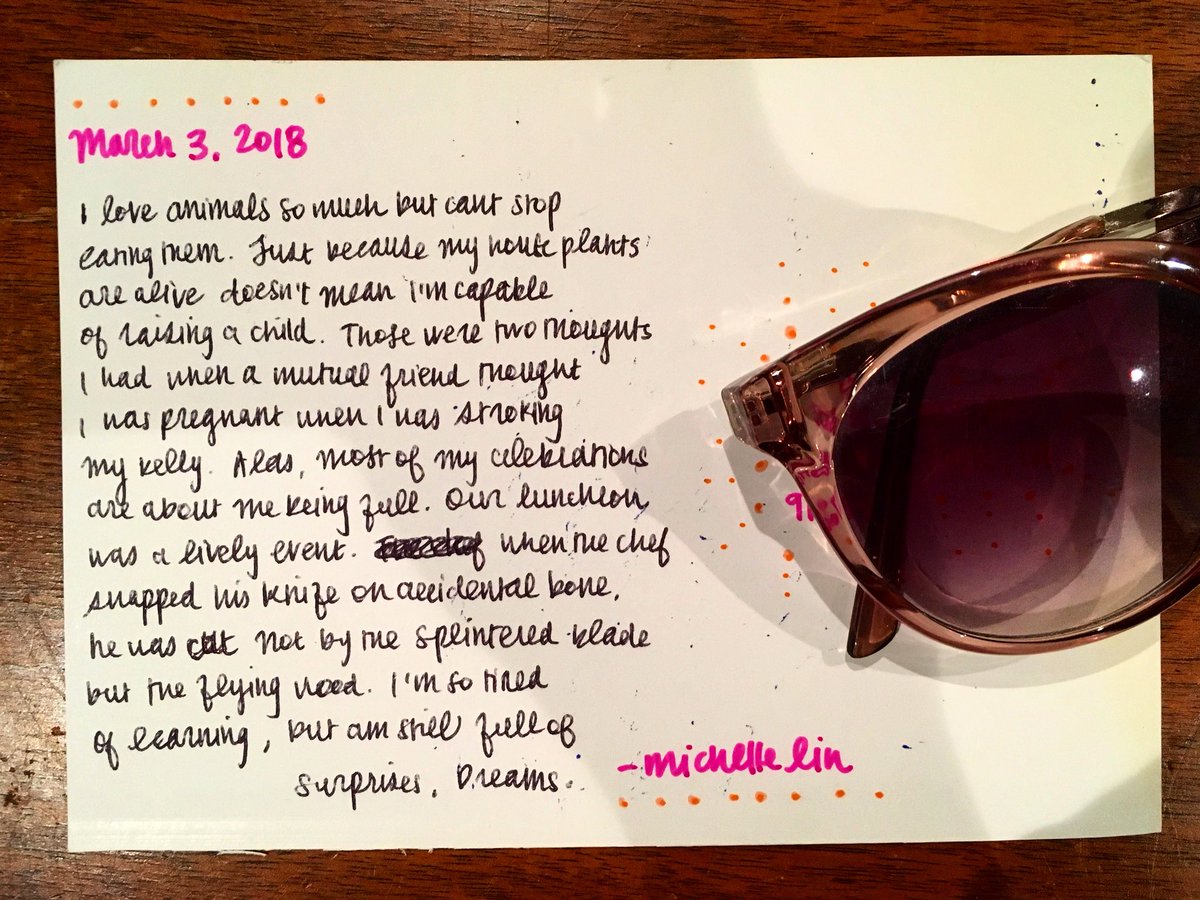 March 3, 2018
I love animals so much but cant stop
eating them. Just because my house plants
are alive doesn't mean I'm capable
of raising a child. Those were two thoughts
I had when a mutual friend thought
I was pregnant when I was stroking
my belly. Alas, most of my celebrations
are about me being full. Our luncheon
was a lively event. when the chef
snapped his knife on accidental bone,
he was cut not by the splintered blade
but the flying wood. I'm so tired
of learning, but am still full of
surprises. Dreams.
- michelle lin